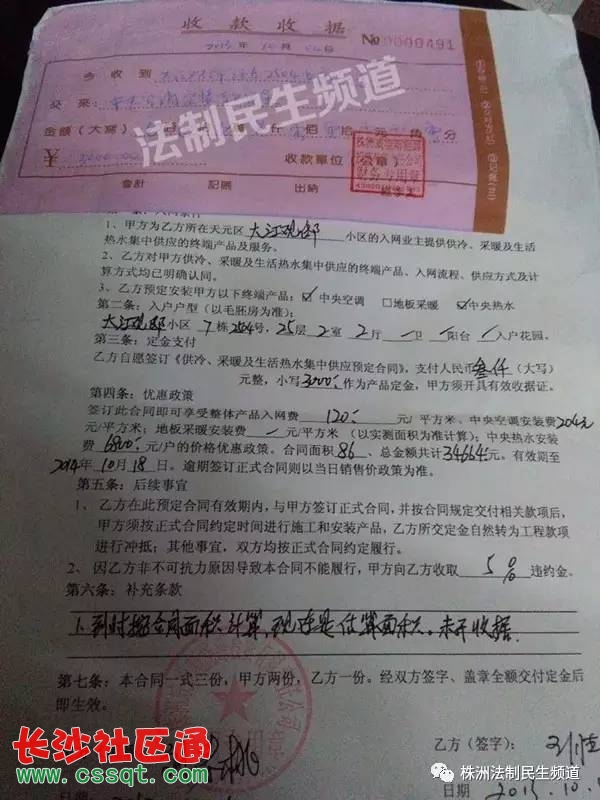 收款收据
2013年10月 日 №0000491
今收到
交来:
金额(大写) 仟 佰 拾 元 角 分
¥ 3000.00 收款单位(盖章)
财务专用章
会计 记账 出纳
法制民生频道
1、甲方为乙方所在天元区 大江观邸 小区的入网业主提供供冷、采暖及生活
热水集中供应的终端产品及服务。
2、乙方对甲方供冷、采暖及生活热水集中供应的终端产品、入网流程、供应方式及计
算方式均已明确认同。
3、乙方预定安装甲方以下终端产品:☑中央空调 □地板采暖 ☑中央热水
第二条:入户户型(以毛胚房为准):
大江观邸小区 7栋2504号,25层2室2厅1卫1阳台/入户花园。
第三条:定金支付
乙方自愿签订《供冷、采暖及生活热水集中供应预定合同》,支付人民币叁仟(大写)
元整,小写3000元作为产品定金,甲方须开具有效收据证。
第四条:优惠政策
签订此合同即可享受整体产品入网费 120 元/平方米、中央空调安装费204元
元/平方米;地板采暖安装费 / 元/平方米(以实测面积为准计算);中央热水安装
费6800元/户的价格优惠政策。合同面积86、总金额共计34664元。有效期至
2014年10月18日。逾期签订正式合同则以当日销售价政策为准。
第五条:后续事宜
1、乙方在此预定合同有效期内,与甲方签订正式合同,并按合同规定交付相关款项后,
甲方须按正式合同约定时间进行施工和安装产品,乙方所交定金自然转为工程款项
进行冲抵;其他事宜,双方均按正式合同约定履行。
2、因乙方非不可抗力原因导致本合同不能履行,甲方向乙方收取 5% 违约金。
第六条:补充条款
1.到时按合同面积计算,现在是估算面积。未开收据.
第七条:本合同一式三份,甲方两份,乙方一份。经双方签字、盖章全额交付定金后
即生效。
乙方(签字):
日期 日期 2013.10.
长沙社区通
www.cssqt.com
株洲法制民生频道